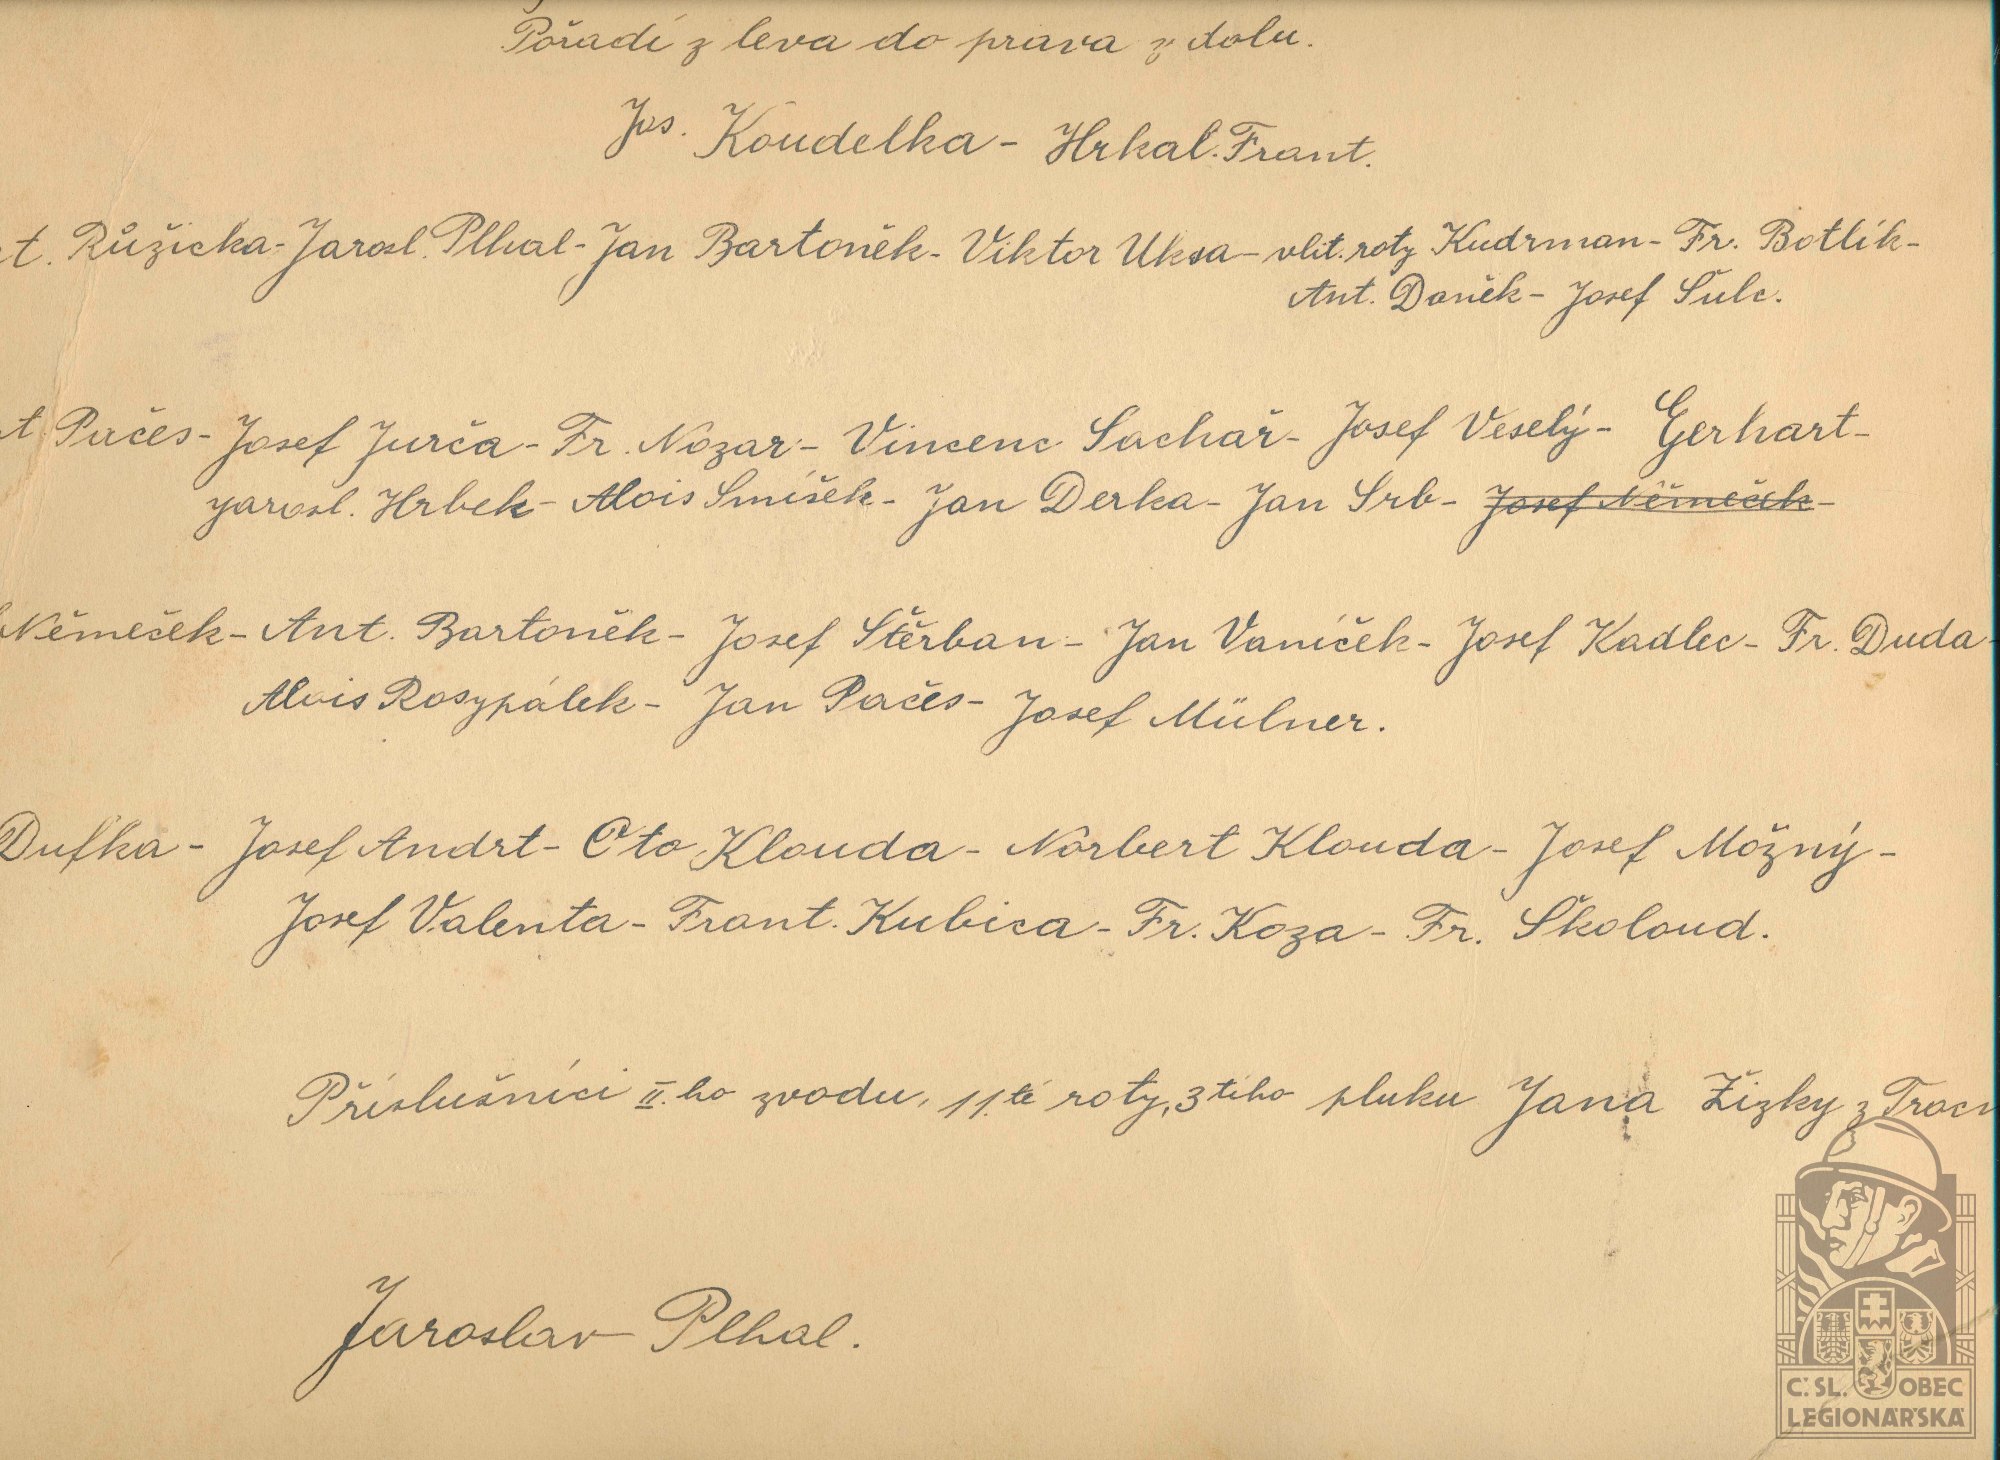 Pořadí z leva do prava z dolu.
Jos. Koudelka - Hrkal. Frant.
t. Růžicka - Jarosl. Plhal - Jan Bartoněk - Viktor Uksa - vlit. roty Kudrman - Fr. Botlík -
Ant. Daněk - Josef Šulc.
t Pačes - Josef Jurča - Fr. Nozar - Vincenc Sachař - Josef Veselý - Gerhart -
Jarosl. Hrbek - Alois Smíšek - Jan Derka - Jan Srb - Josef Němeček -
Němeček - Ant. Bartoněk - Josef Štěrban - Jan Vaníček - Josef Kadlec - Fr. Duda -
Alois Rosypálek - Jan Pačes - Josef Mülner.
Dufka - Josef Andrt - Oto Klouda - Norbert Klouda - Josef Možný -
Josef Valenta - Frant. Kubica - Fr. Koza - Fr. Školoud.
Příslušníci II.ho zvodu, 11.té roty, 3tího pluku Jana Žižky z Troc
Jaroslav Plhal.
Č. SL. OBEC
LEGIONÁŘSKÁ